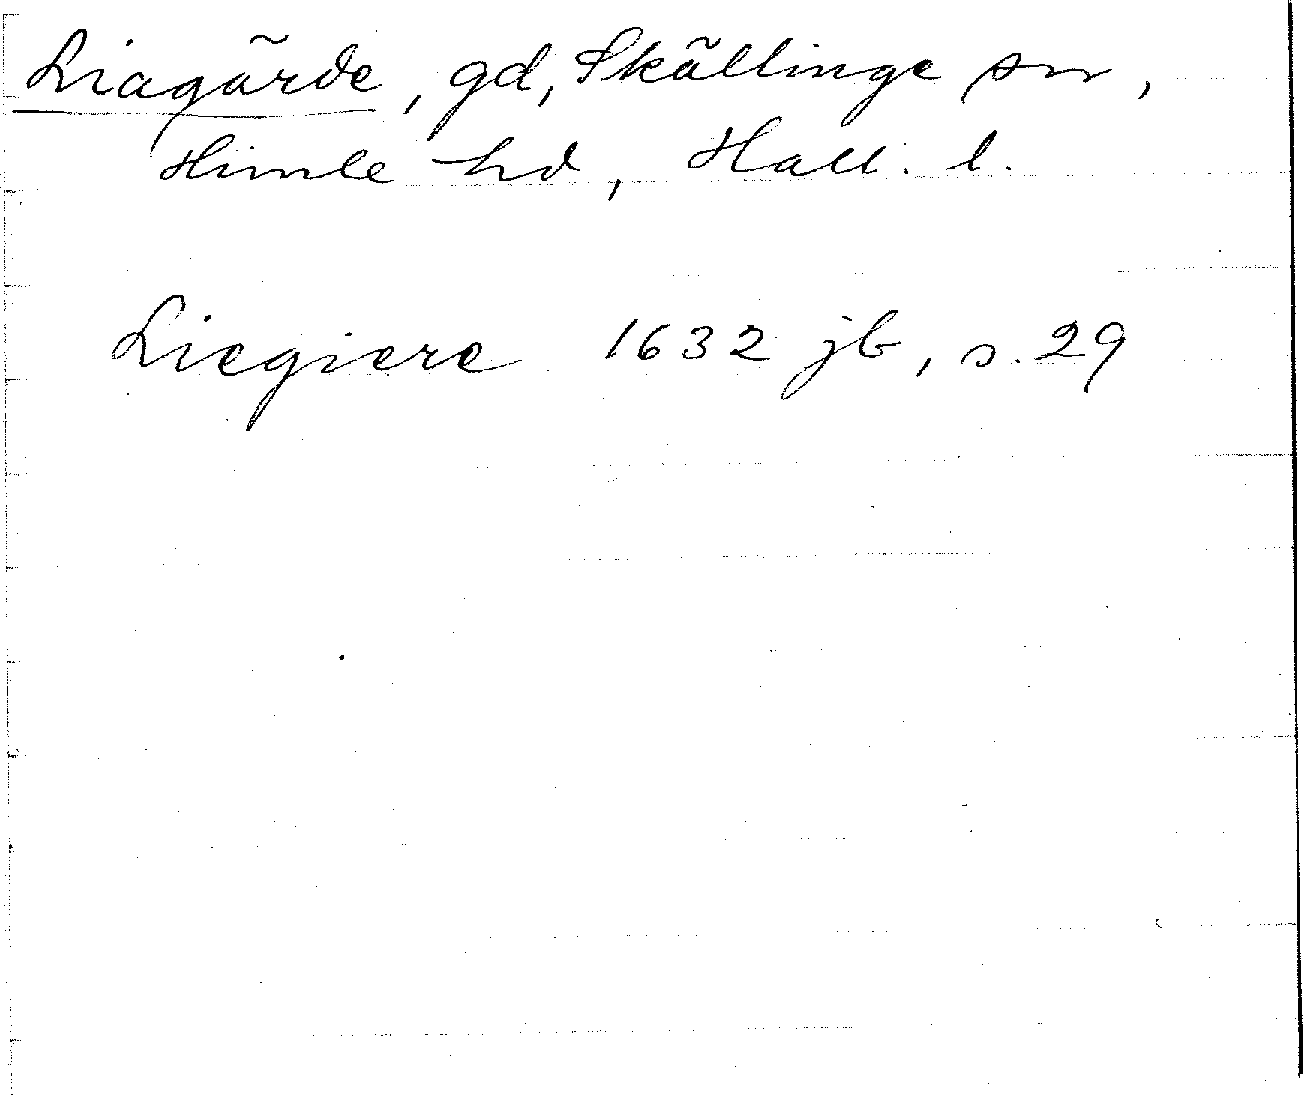 Liagärde, gd, Skällinge sn,
Himle hd, Hall. l.
Liegiere 1632 jb, s. 29